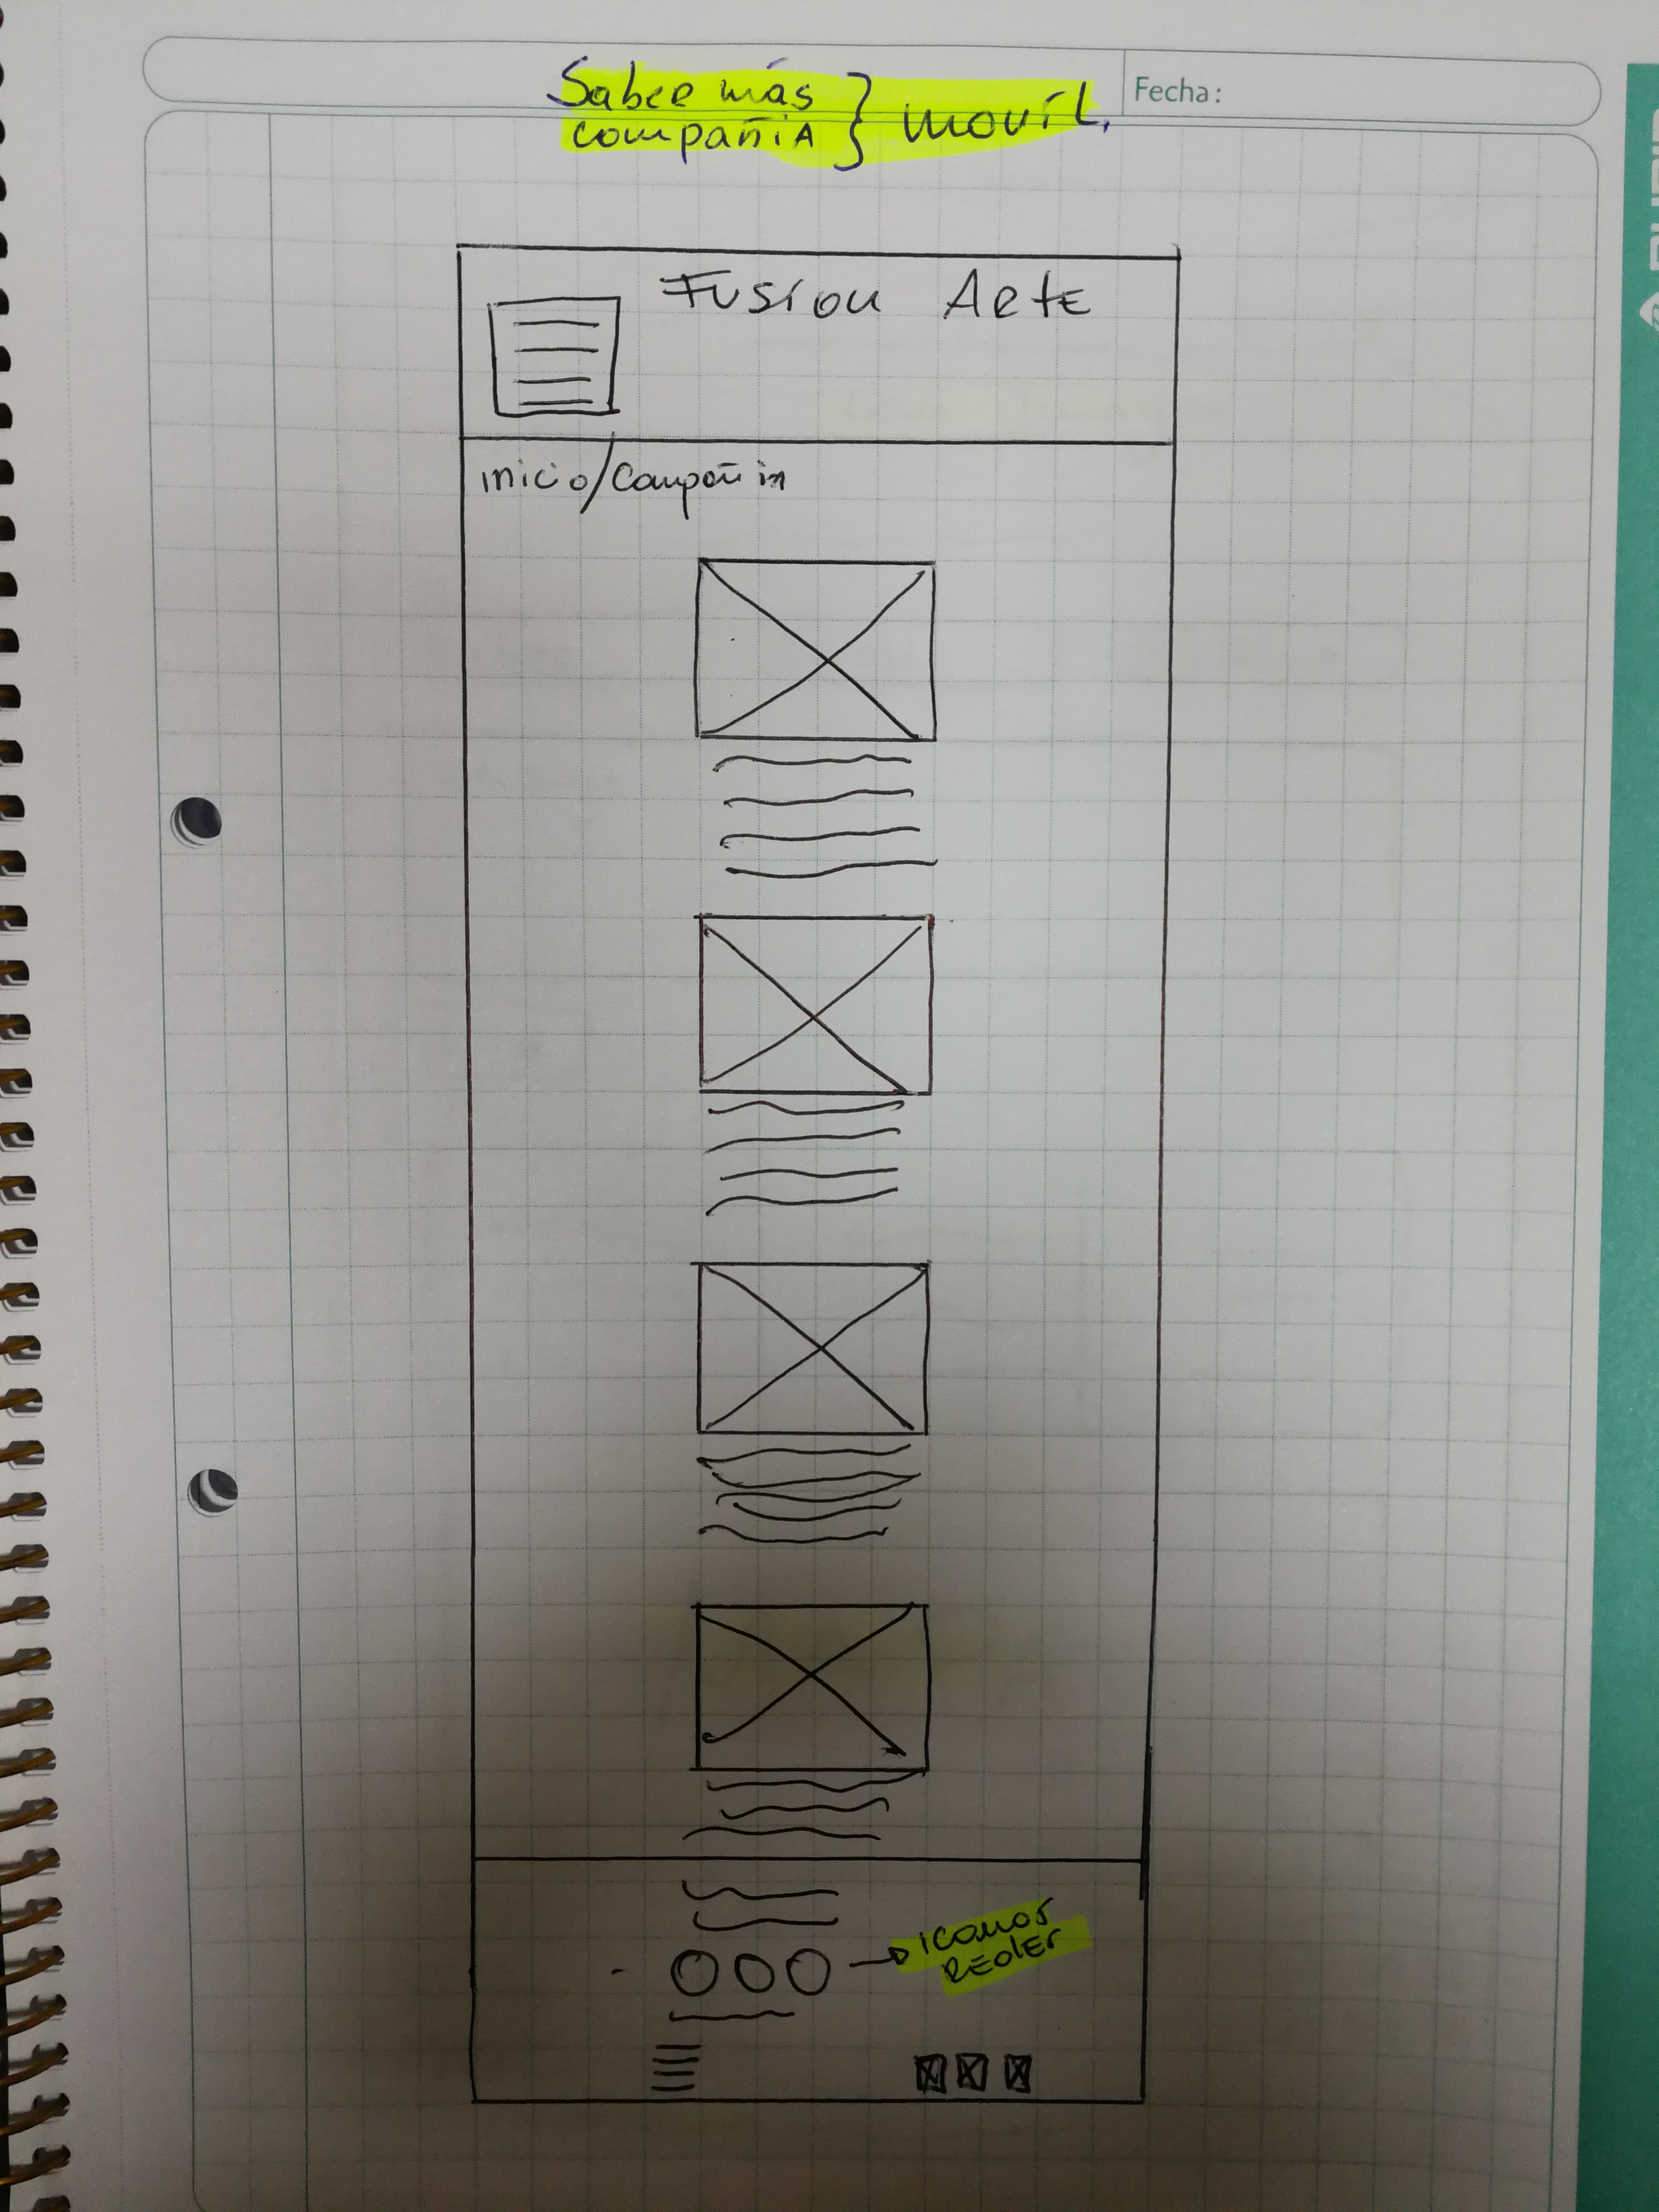 Saber más
compañia } movil.
Fecha:
Fusion Arte
inicio/Compañia
iconos
REDES